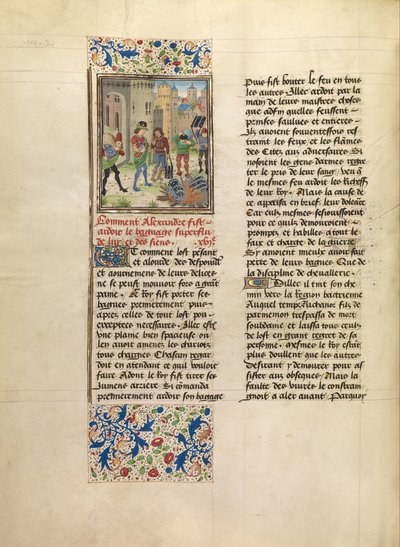 Comment Alexandre fist
ardoir le bagaige superflu
de luy et des siens. xvj.
Et comment lost pesant
et alourde des despouilles
et aournemens de leurs delices
ne se peust mouvoir fors a grant
paine. Le Roy fist porter ses
bagues premierement puis
apres celles de tout lost
exceptees necessaires. Illec est
une plaine bien spacieuse ou
len avoit amene les chariotz
tous chargies. Chascun regar
doit en attendant ce quil vouloit
faire. Adont le Roy fist tirer ses
iumens arriere. Si comanda
premierement ardoir son bagage
Puis fist bouter le feu en tous
les autres. Illec ardoit par la
main de leurs maistres choses
que adfin quelles feussent
prinses saulves et entieres
Ilz avoient souventeffois res
traint les feux et les flames
des Citez aux adversaires. Si
nosoient les gens darmes regre
ter le pris de leur sang veu que
le mesmes feu ardoit les Richesses
de leur Roy. Mais la cause de
ce apparsa en brief leur doleance
Car eulx mesmes sesioussoient
pour ce quilz demouroient
promptez et habilles a tout le
faix et charge de la guerre
Si avoient mieulx avoir fait
perte de leurs bagues Que de
la discipline de chevallerie.
Dillec il tint son che
min vers la Region bactrienne
Auquel temps Nichanor filz de
parmenion trespassa de mort
soubdaine et laissa tous ceulx
de lost en grant regret de sa
personne. Mesmes le Roy estoit
plus doullent que les autres
Desirant y demourer pour as
sister aux obseques. Mais la
faulte des vivres le constraing
gnoit a aler avant. Parquoy